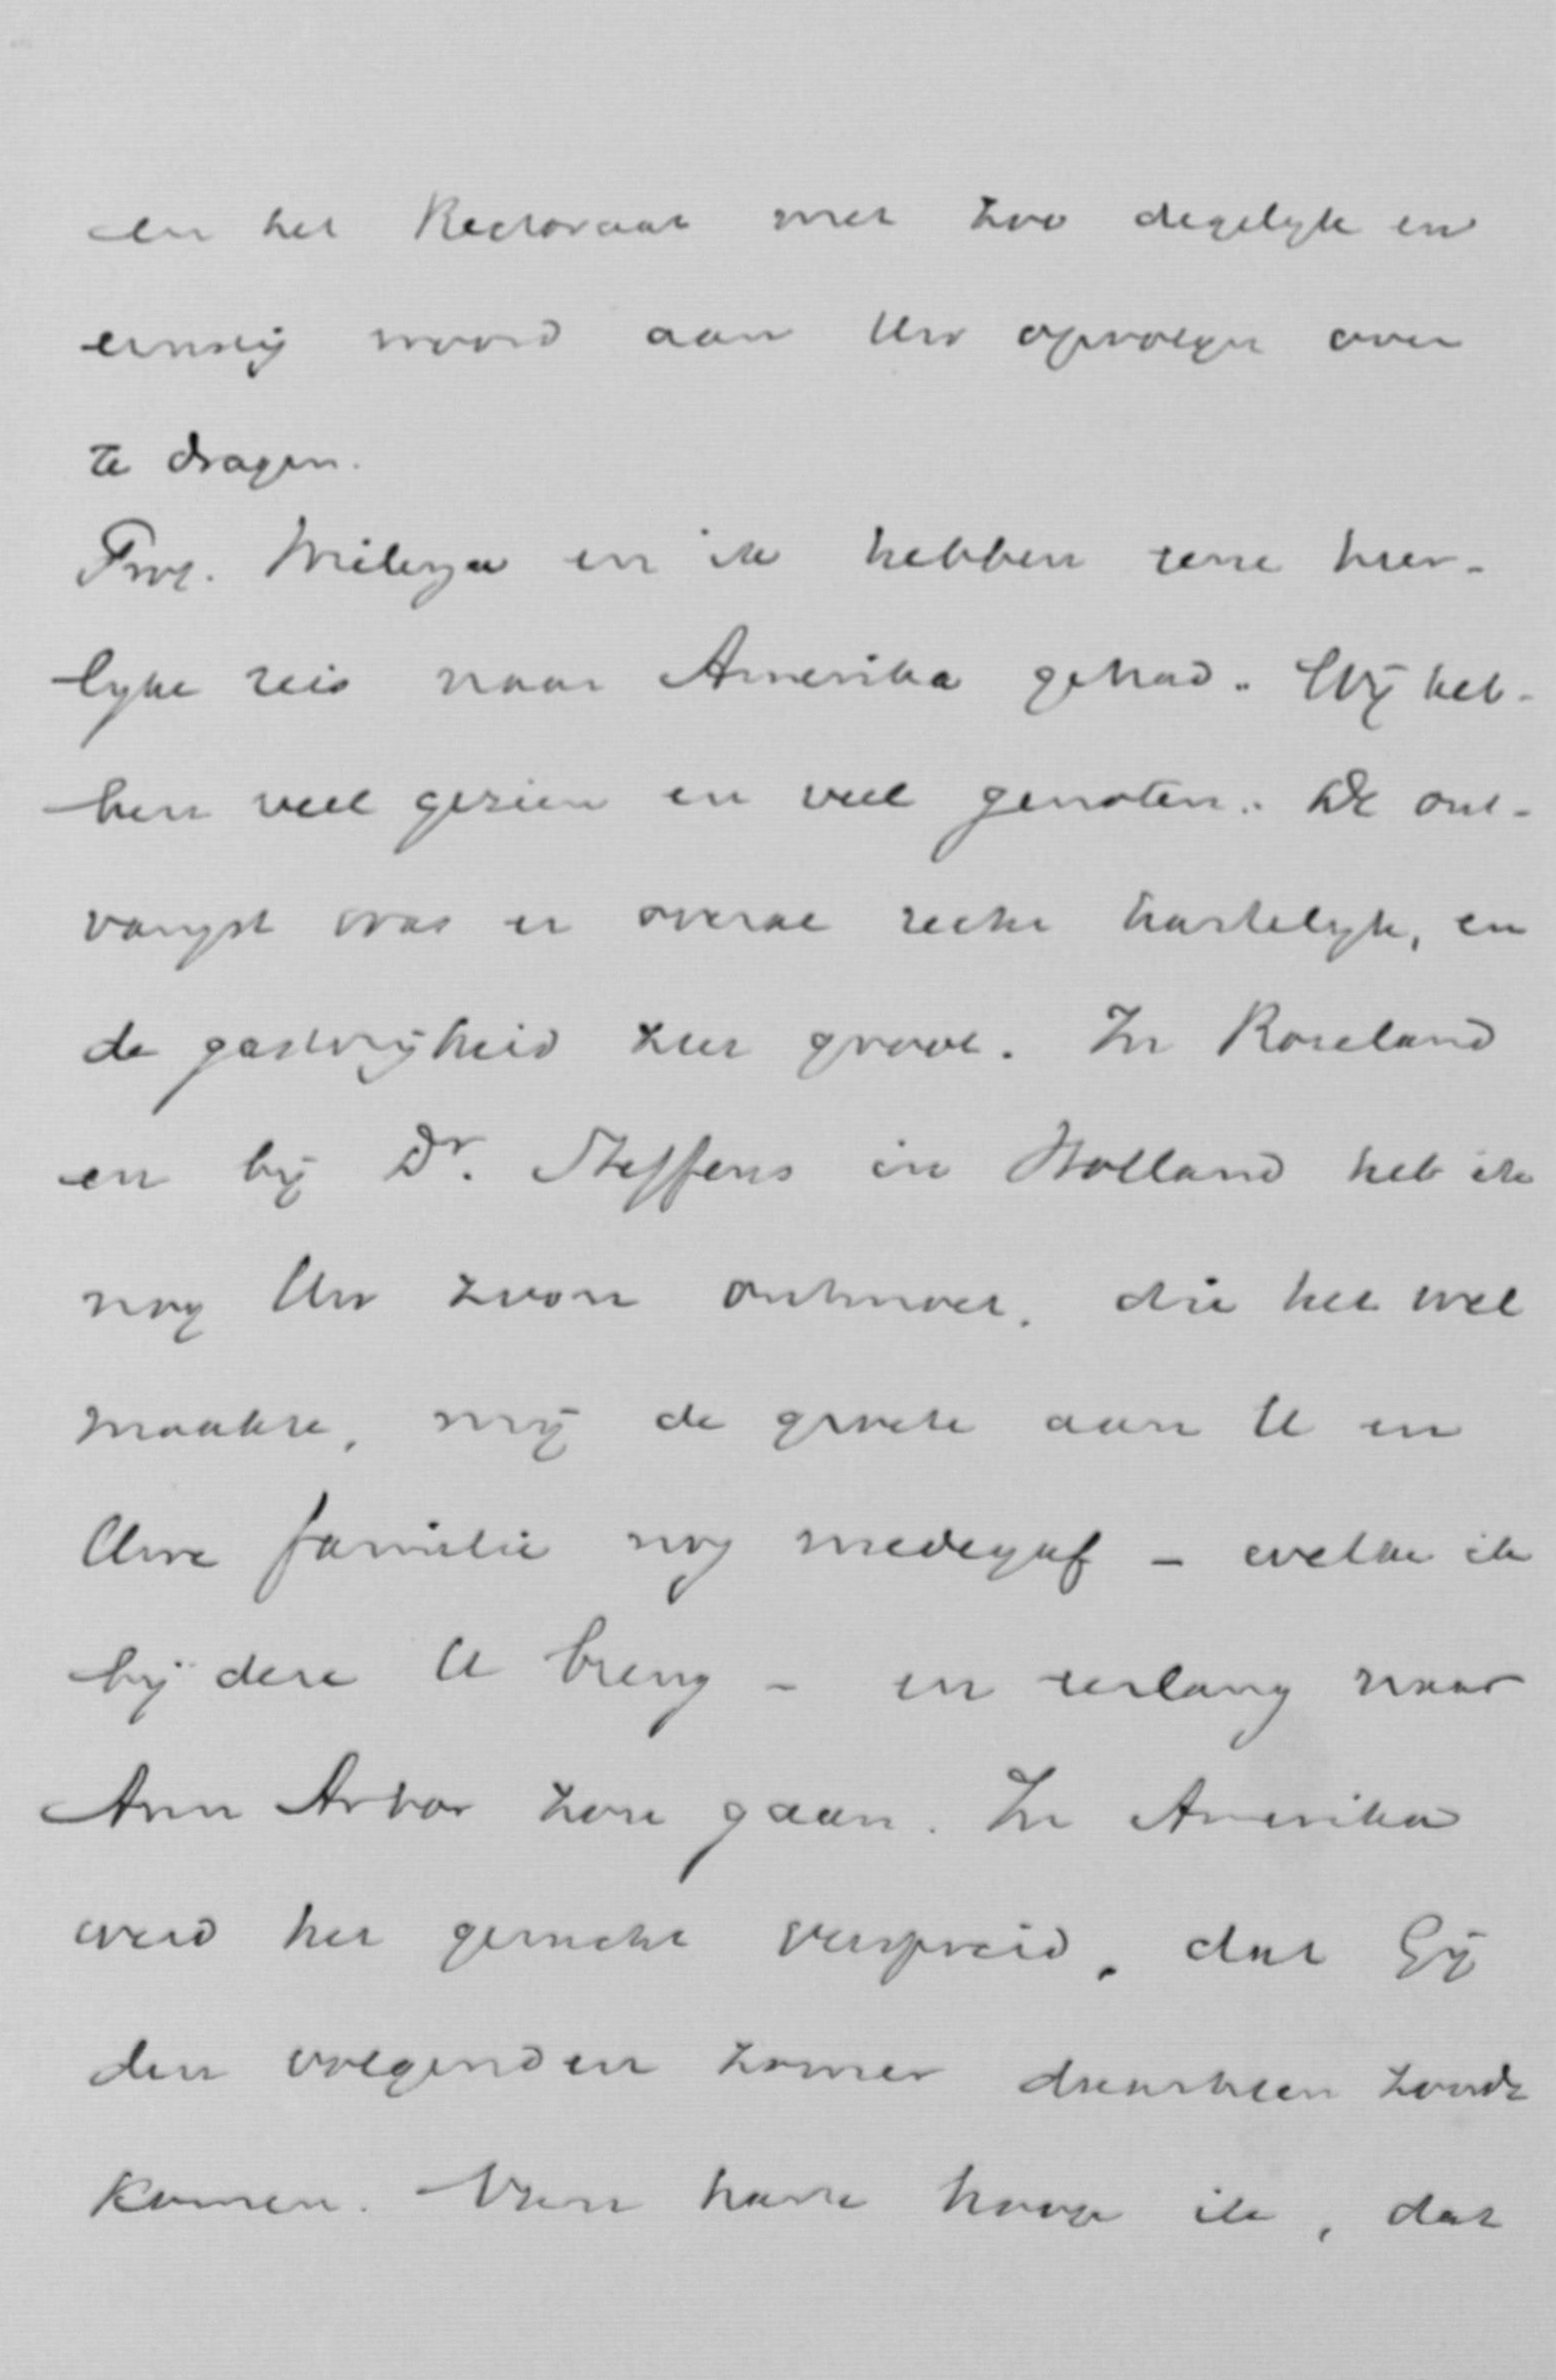 en het Rectoraat met zoo degelijk en
ernstig woord aan Uw opvolger over
te dragen.
Prof. Wielenga en ik hebben eene heer-
lijke reis naar Amerika gehad. Wij heb-
ben veel gezien en veel genoten. De ont-
vangst was er overal recht hartelijk, en
de gastvrijheid zeer groot. In Roseland
en bij Dr. Steffens in Holland heb ik
nog Uw zoon ontmoet, die het wel
maakte, mij de groete aan U en
Uwe familie nog medegaf – welke ik
bij deze U breng – en eerlang naar
Ann Arbor zou gaan. In Amerika
werd het gerucht verspreid, dat Gij
den volgenden zomer derwaarts zoudt
komen. Van harte hoop ik, dat